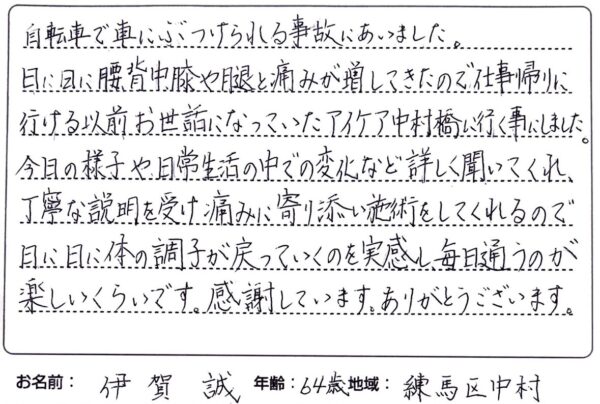 自転車で車にぶつけられる事故にあいました。
日に日に腰背中膝や腿と痛みが増してきたので仕事帰りに
行ける以前お世話になっていたアイケア中村橋に行く事にしました。
今日の様子や日常生活の中での変化など詳しく聞いてくれ、
丁寧な説明を受け痛みに寄り添い施術をしてくれるので
日に日に体の調子が戻っていくのを実感し毎日通うのが
楽しいくらいです。感謝しています。ありがとうございます。
お名前： 伊賀 誠 年齢：64歳 地域： 練馬区中村